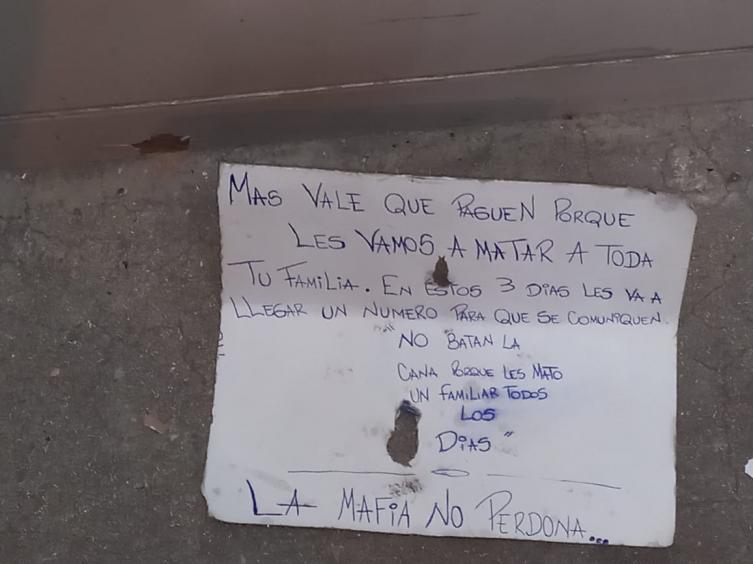 MAS VALE QUE PAGUEN PORQUE
LES VAMOS A MATAR A TODA
TU FAMILIA. EN ESTOS 3 DIAS LES VA A
LLEGAR UN NUMERO PARA QUE SE COMUNIQUEN.
"NO BATAN LA
CANA PORQUE LES MATO
UN FAMILIAR TODOS
LOS
DIAS"
LA MAFIA NO PERDONA...